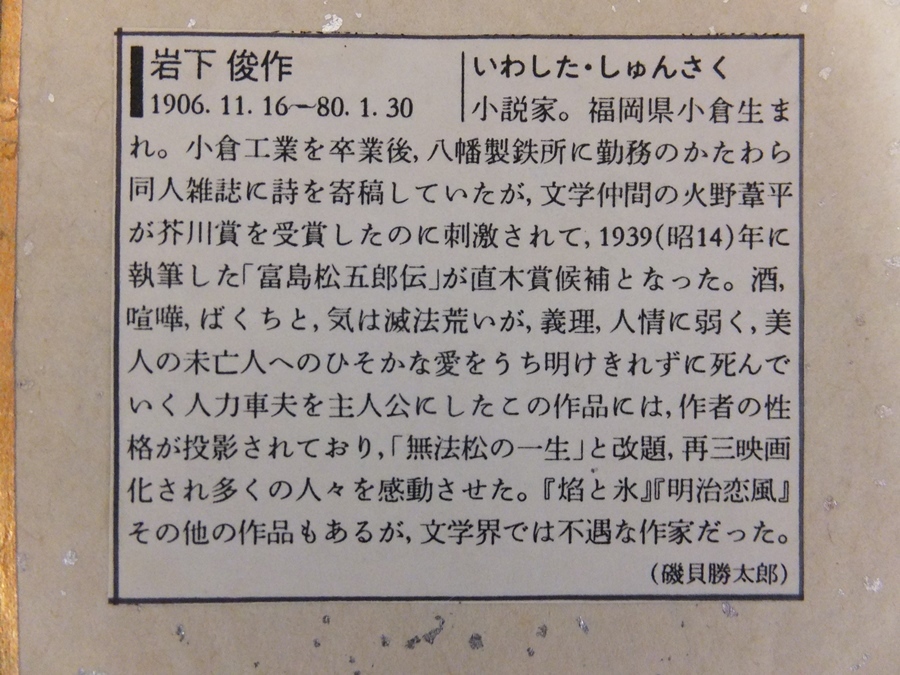 岩下 俊作
いわした・しゅんさく
1906. 11. 16〜80. 1. 30
小説家。福岡県小倉生ま
れ。小倉工業を卒業後, 八幡製鉄所に勤務のかたわら
同人雑誌に詩を寄稿していたが, 文学仲間の火野葦平
が芥川賞を受賞したのに刺激されて, 1939(昭14)年に
執筆した「富島松五郎伝」が直木賞候補となった。酒,
喧嘩, ばくちと, 気は滅法荒いが, 義理, 人情に弱く, 美
人の未亡人へのひそかな愛をうち明けきれずに死んで
いく人力車夫を主人公にしたこの作品には, 作者の性
格が投影されており,「無法松の一生」と改題, 再三映画
化され多くの人々を感動させた。『焰と氷』『明治恋風』
その他の作品もあるが, 文学界では不遇な作家だった。
(磯貝勝太郎)